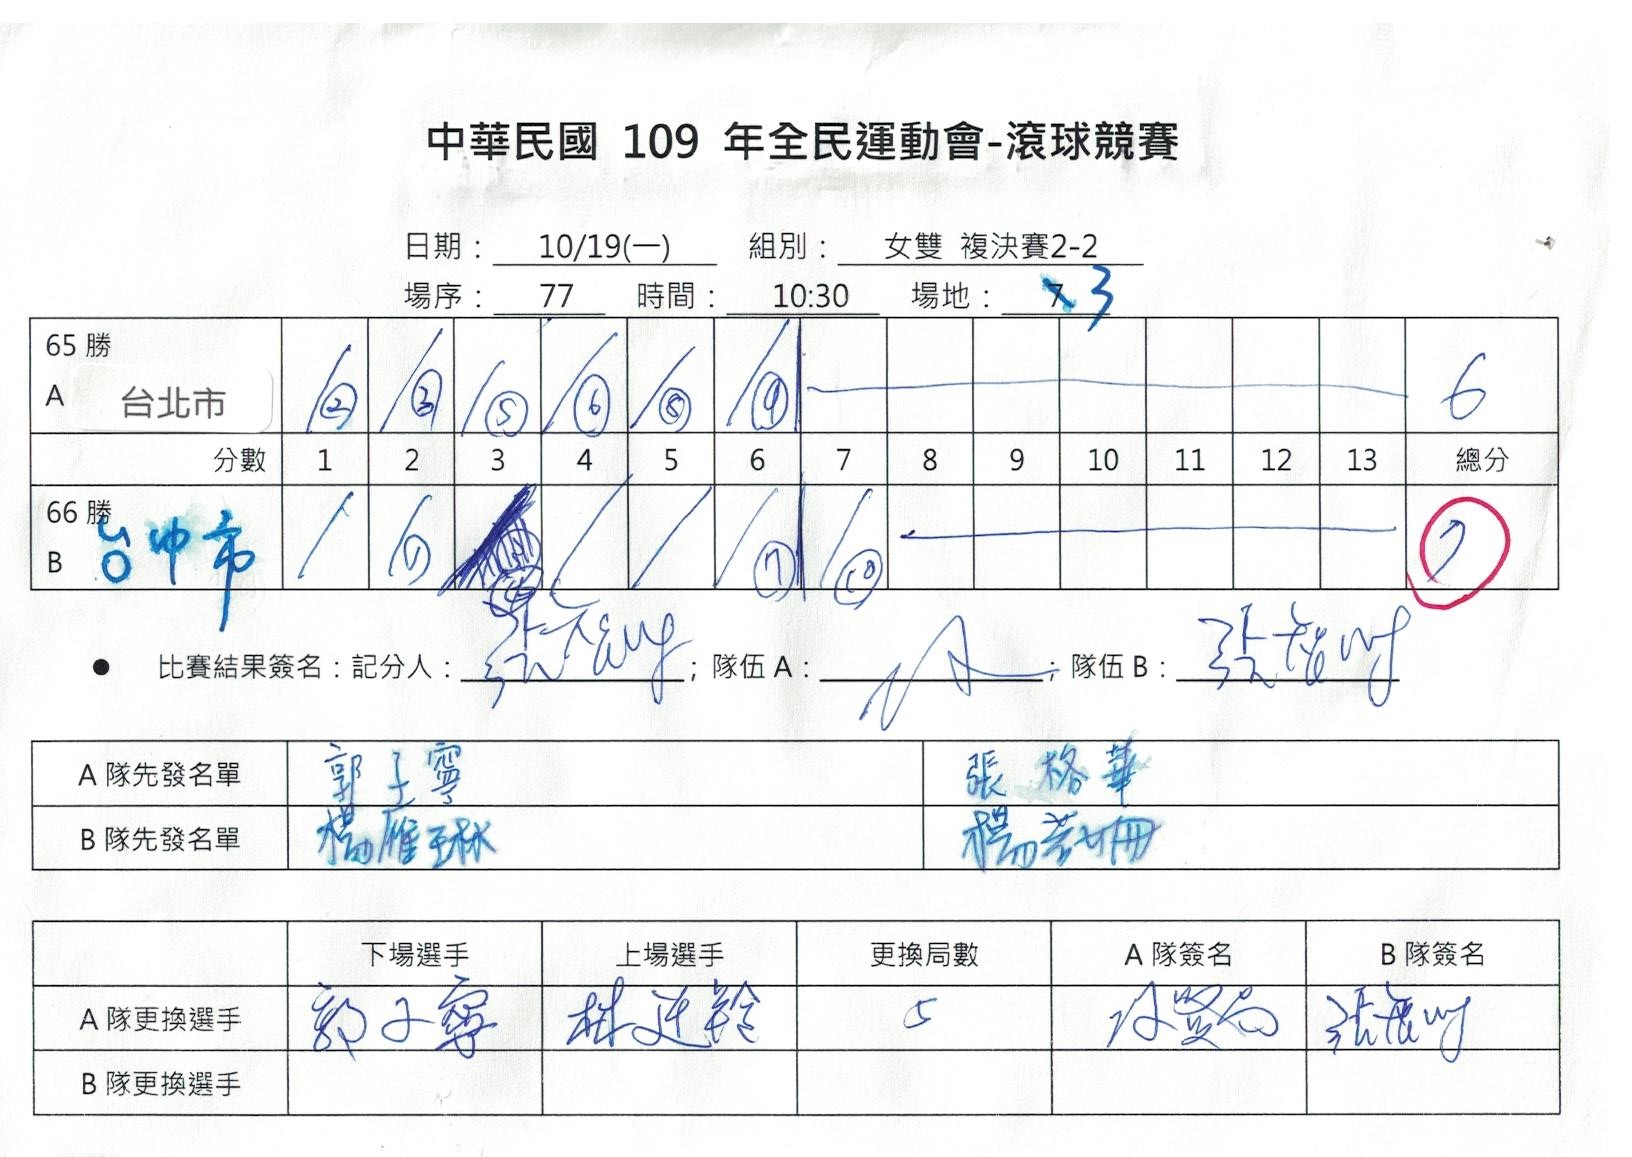 中華民國 109 年全民運動會-滾球競賽
日期： 10/19(一) 組別： 女雙 複決賽2-2
場序： 77 時間： 10:30 場地： 7 3
65 勝
A 台北市 2 3 5 6 8 9 6
分數 1 2 3 4 5 6 7 8 9 10 11 12 13 總分
66 勝
B 台中市 1 4 7 10 7
● 比賽結果簽名：記分人： ；隊伍 A： ；隊伍 B：
A 隊先發名單 郭子寧 張格華
B 隊先發名單 楊雁琳
下場選手 上場選手 更換局數 A 隊簽名 B 隊簽名
A 隊更換選手 郭子寧 林廷羚 5
B 隊更換選手